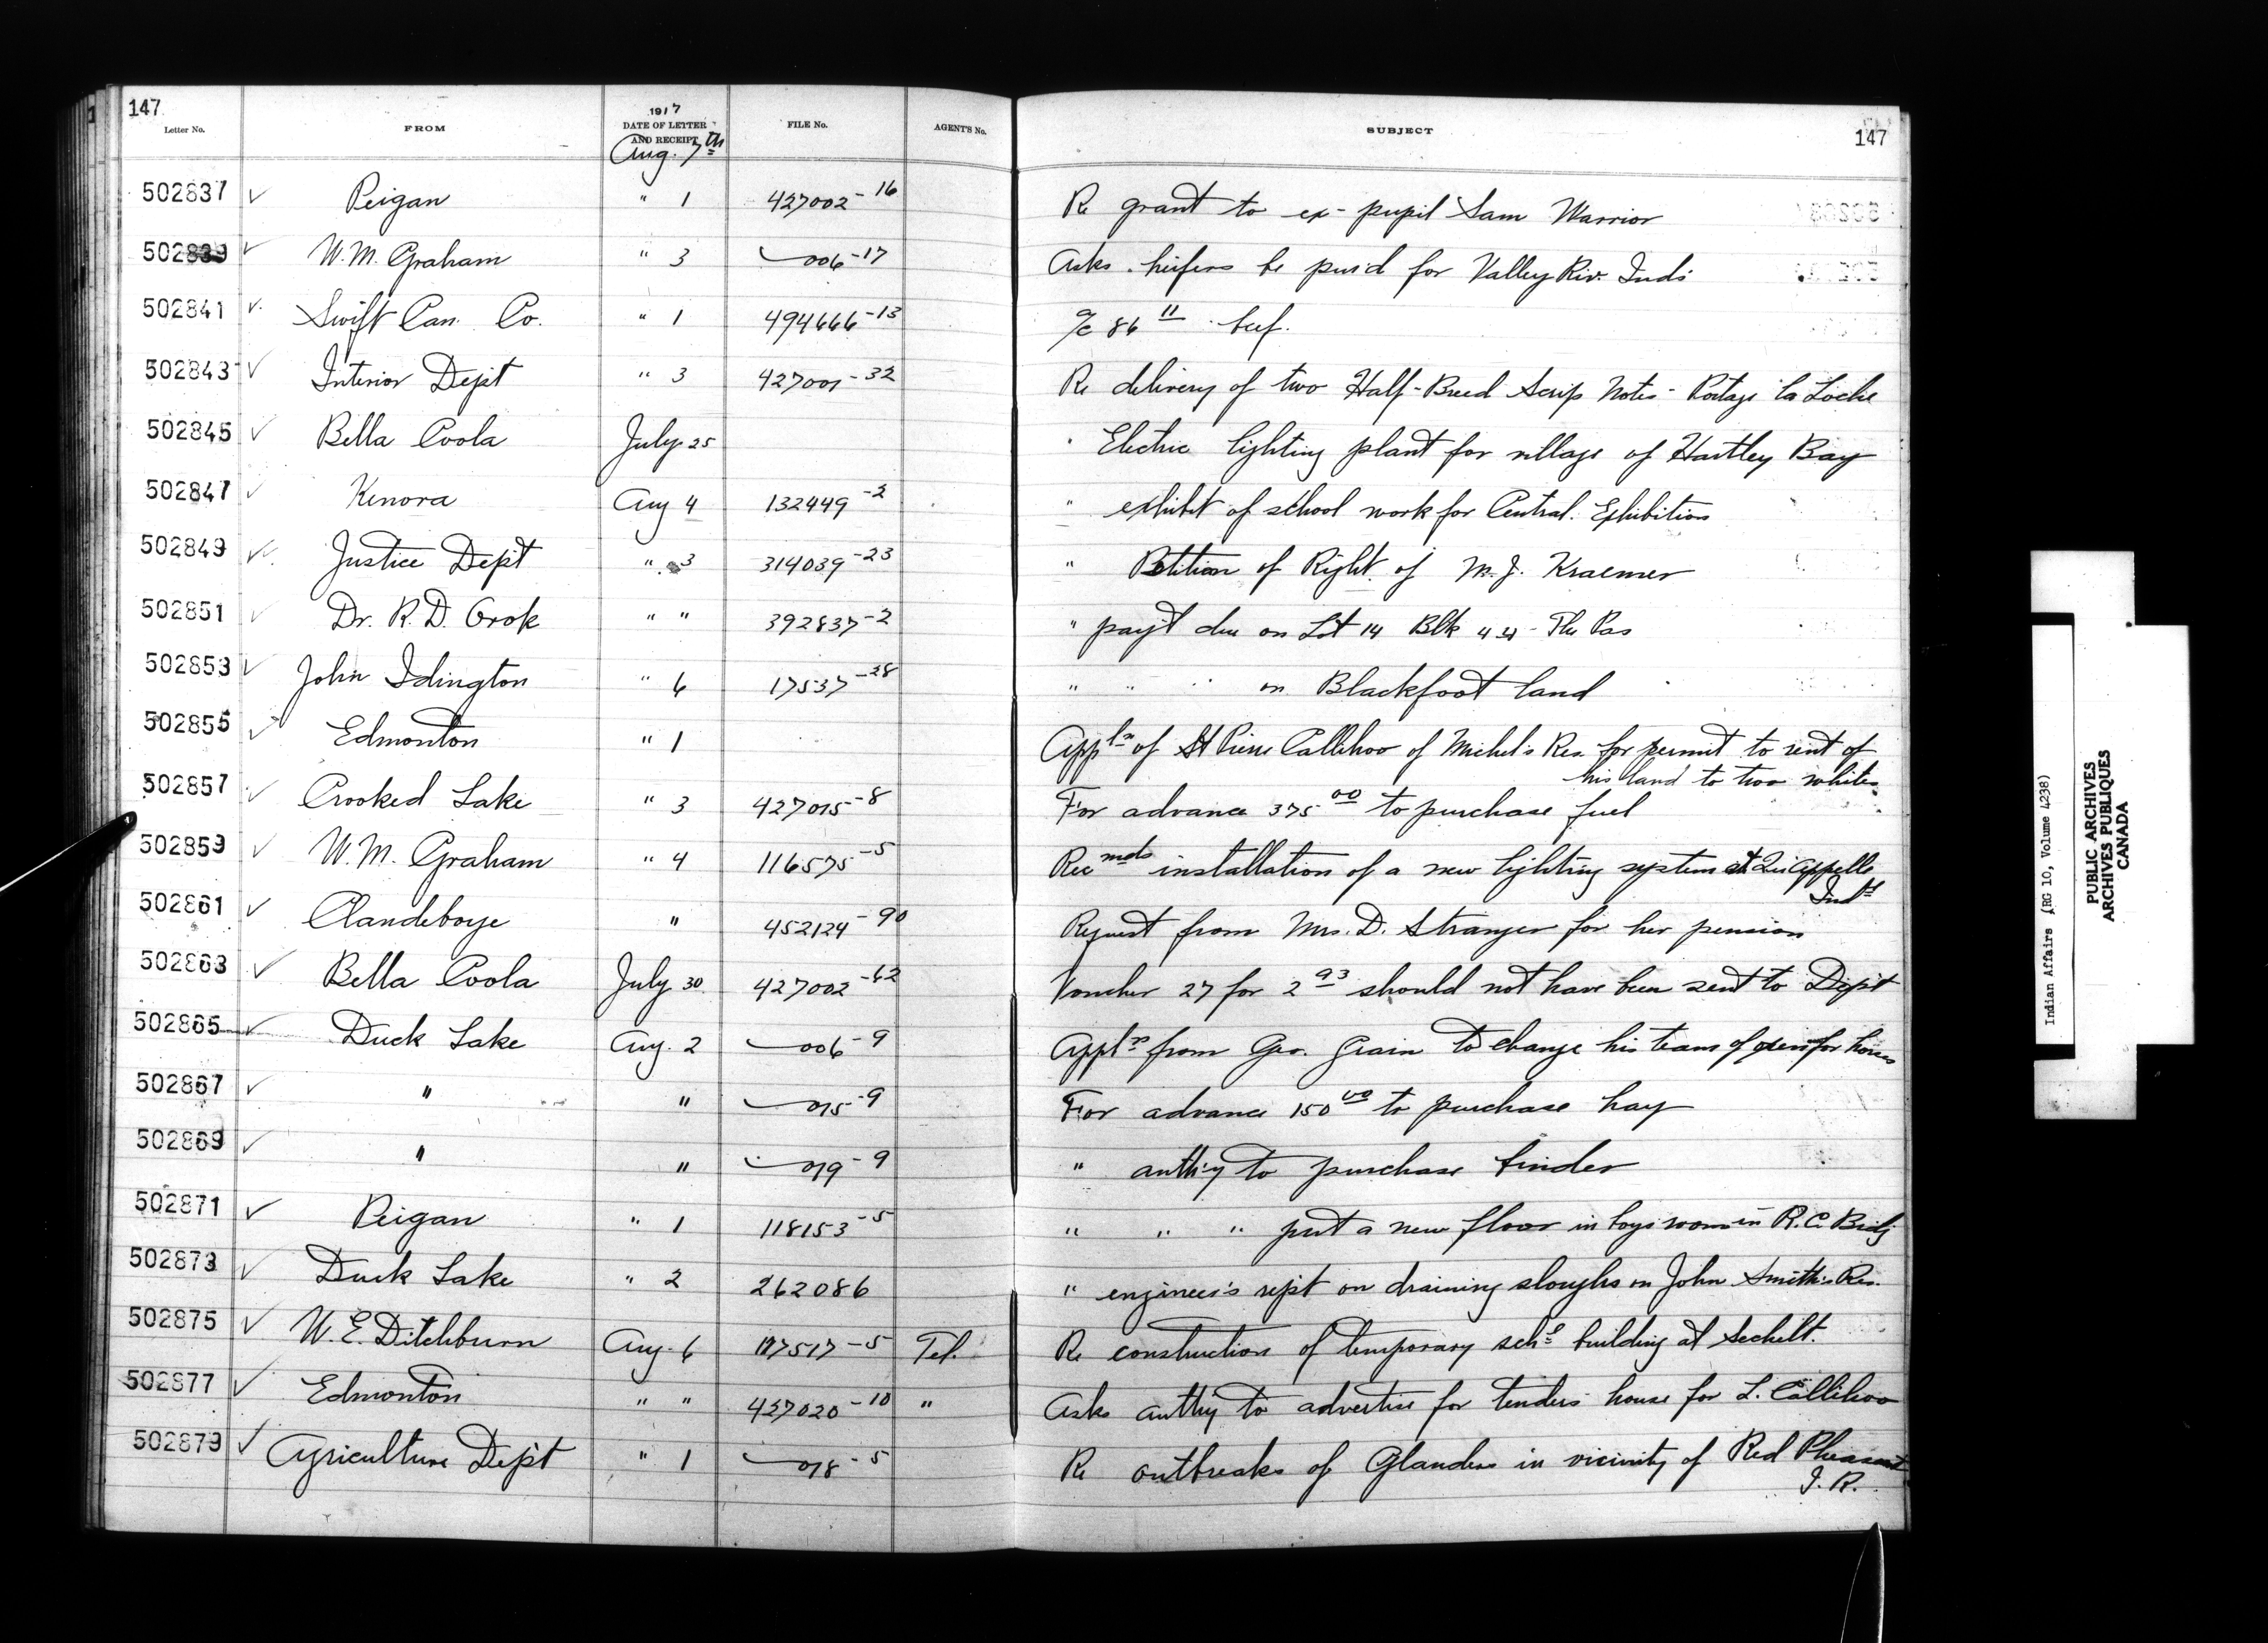 147
Letter No. FROM 1917 DATE OF LETTER AND RECEIPT FILE No. AGENT'S No. SUBJECT 147
Aug. 7th
502837 ✓ Peigan " 1 427002-16 Re grant to ex-pupil Sam Warrior
502839 ✓ W.M. Graham " 3 006-17 Asks heifers be purd for Valley Riv. Inds
502841 ✓ Swift Can. Co. " 1 494666-13 a/c 86 11 beef.
502843 ✓ Interior Dept " 3 427001-32 Re delivery of two Half-Breed Scrip Notes - Portage la Loche
502845 ✓ Bella Coola July 25 " Electric lighting plant for village of Hartley Bay
502847 ✓ Kenora Aug 4 132449-2 " exhibit of school work for Central. Exhibition
502849 ✓ Justice Dept " 3 314039-23 " Petition of Right of M.J. Kraemer
502851 ✓ Dr. R.D. Orok " " 392837-2 " pay't due on Lot 14 Blk 44 - The Pas
502853 ✓ John Idington " 6 17537-28 " " " on Blackfoot land
502855 ✓ Edmonton " 1 Appln of St Pierre Callihoo of Michel's Res. for permit to rent of
his land to two whites
502857 ✓ Crooked Lake " 3 427015-8 For advance 375 00 to purchase fuel
502859 ✓ W.M. Graham " 4 116575-5 Recmds installation of a new lighting system at Qu'Appelle
Indl
502861 ✓ Clandeboye " 452124-90 Request from Mrs. D. Stranger for her pension
502863 ✓ Bella Coola July 30 427002-62 Voucher 27 for 2 93 should not have been sent to Dept
502865 ✓ Duck Lake Aug. 2 006-9 Appln from Geo. Grain to change his team of oxen for horses
502867 ✓ " " 015-9 For advance 150 00 to purchase hay
502869 ✓ " " 019-9 " authy to purchase binder
502871 ✓ Peigan " 1 118153-5 " " " put a new floor in boys room in R.C. Bdg
502873 ✓ Duck Lake " 2 262086 " engineer's rept on draining sloughs on John Smith's Res.
502875 ✓ W.E. Ditchburn Aug. 6 117517-5 Tel. Re construction of temporary schl building at Sechelt.
502877 ✓ Edmonton " " 427020-10 " Asks authy to advertise for tenders house for L. Callihoo
502879 ✓ Agriculture Dept " 1 018-5 Re outbreaks of Glanders in vicinity of Red Pheasant
I.R.
Indian Affairs (RG 10, Volume 4238)
PUBLIC ARCHIVES
ARCHIVES PUBLIQUES
CANADA